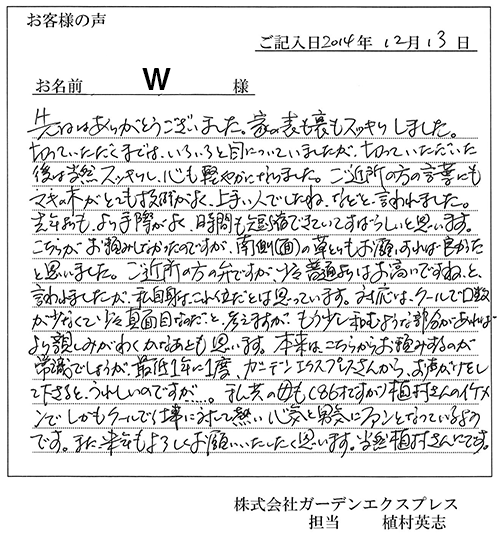 お客様の声
ご記入日2014年 12月 13日
お名前 W 様
先日はありがとうございました。家の表も裏もスッキリしました。
切っていただくまでは、いろいろと目についていましたが、切っていただいた
後は当然スッキリし、心も軽やかになりました。ご近所の方の言葉にも
マキの木がとても技術がよく、上手い人でしたね、などと、言われました。
去年よりも、より手際がよく、時間も短縮できていてすばらしいと思います。
こちらが、お頼みしなかったのですが、南側(面)の草とりもお願いすれば良かった
と思いました。ご近所の方の弁ですが、少々普通よりはお高いですね、と、
言われましたが、私自身は、これ位だとは思っています。対応は、クールで口数
が少なくて、少々真面目なのだと、考えますが、もう少し和むような部分があれば
より親しみがわくかなあとも思います。本来は、こちらからお頼みするのが
常識でしょうが、最低1年に1度、ガーデンエクスプレスさんから、お声がけをし
て下さると、うれしいのですが…。私共の母も(86才ですが)植村さんのイケメ
ンで、しかもクールで仕事に対しての熱い心気と男気にファンとなっているよう
です。また来年もよろしくお願いいたしたく思います。当然植村さんにです。
株式会社ガーデンエクスプレス
担当 植村英志